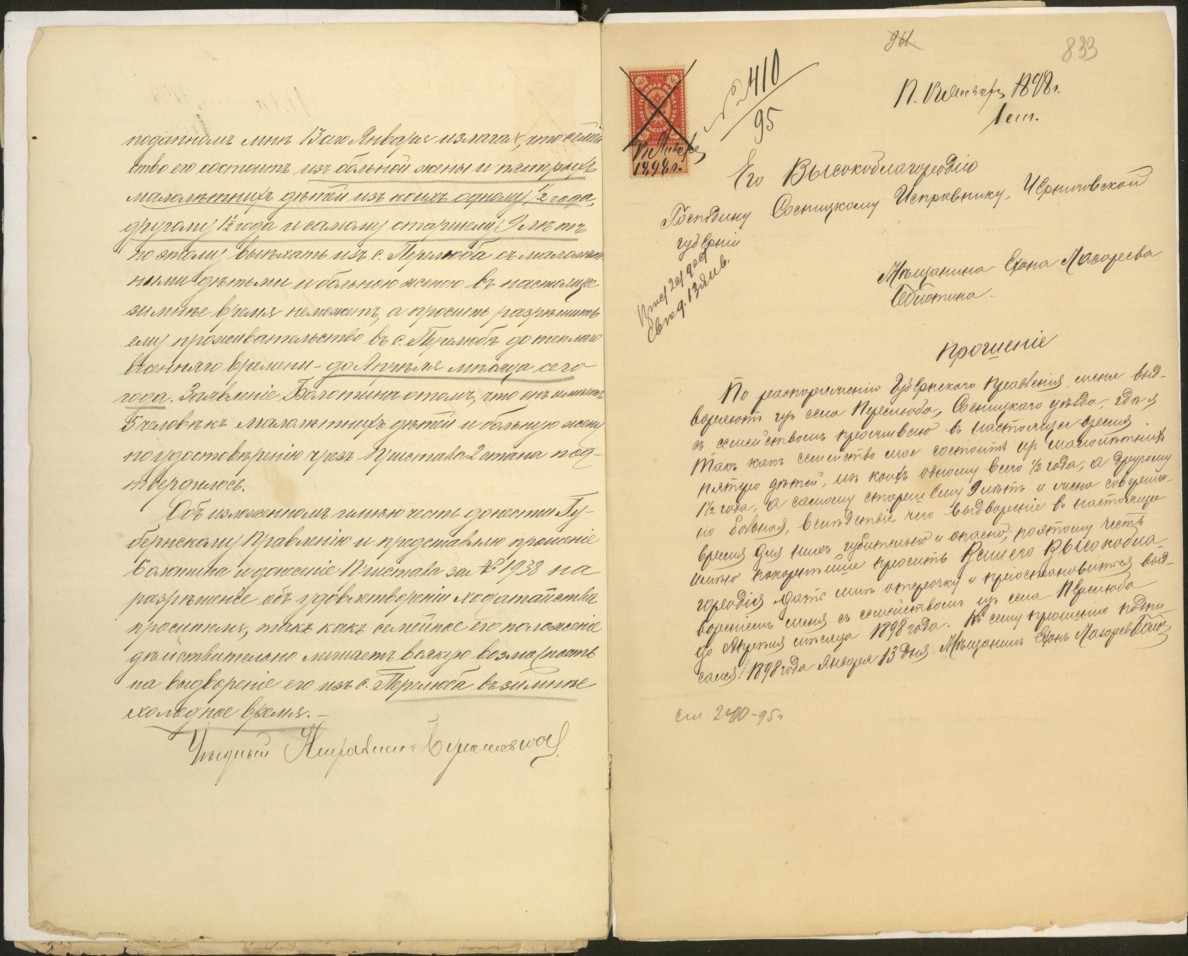 поданномъ мнѣ 13аго Января излагая, что семей
ство его состоитъ изъ больной жены и пятерыхъ
малолѣтнихъ дѣтей изъ коихъ одному ½ года,
другому 1½ года и самому старшему 9 лѣтъ
поэтому выѣхать изъ с. Перелюба съ малолѣт
ними дѣтьми и больною женою въ настоящее
зимнѣе время неможетъ, а проситъ разрѣшить
ему проживательство въ с. Перелюбѣ до теплаго
весенняго времени - до Апрѣля мѣсяца сего
года. Заявленіе Болотина о томъ, что онъ имѣетъ
5 человѣкъ малолѣтнихъ дѣтей и больную жену
по удостовѣренію чрезъ Пристава 2 стана под-
твердилось.
Объ изложенномъ имѣю честь донести Гу-
бернскому Правленію и представляю прошеніе
Болотина и донесеніе Пристава за № 1938 на
разрѣшеніе объ удовлетвореніи ходатайства
просителя, такъ какъ семейное его положеніе
дѣйствительно лишаетъ всякую возможность
на выдвореніе его изъ с. Перелюба въ зимнѣе
холодное время. -
Уѣздный Исправникъ
94
833
№ 2410/95
П. Января 1898 г.
1 ст.
1898 г.
Его Высокоблагородію
Господину Сосницкому Исправнику, Черниговской
губерніи
13 янв.
Мѣщанина Лазарева
Прошеніе
По распоряженію Губернскаго Правленія, меня выд-
воряютъ изъ села Перелюба, Сосницкаго уѣзда, гдѣ я
съ семействомъ проживаю въ настоящее время
Такъ какъ семейство мое состоитъ изъ малолѣтнихъ
пятерыхъ дѣтей, изъ коихъ одному всего ½ года, а другому
1½ года, а самому старшему 9 лѣтъ и жена совершен-
но больная, вслѣдствіе чего выдвореніе въ настоящее
время для нихъ губительно и опасно, поэтому честь
имѣю покорнѣйше просить Вашего Высокобла-
городія дать мнѣ отсрочку и пріостановиться выд-
вореніемъ меня съ семействомъ изъ села Перелюба
до Апрѣля мѣсяца 1898 года. Къ сему прошенію подпи-
сался: 1898 года Января 13 дня. Мѣщанинъ Лазаревъ
ст 2410-95